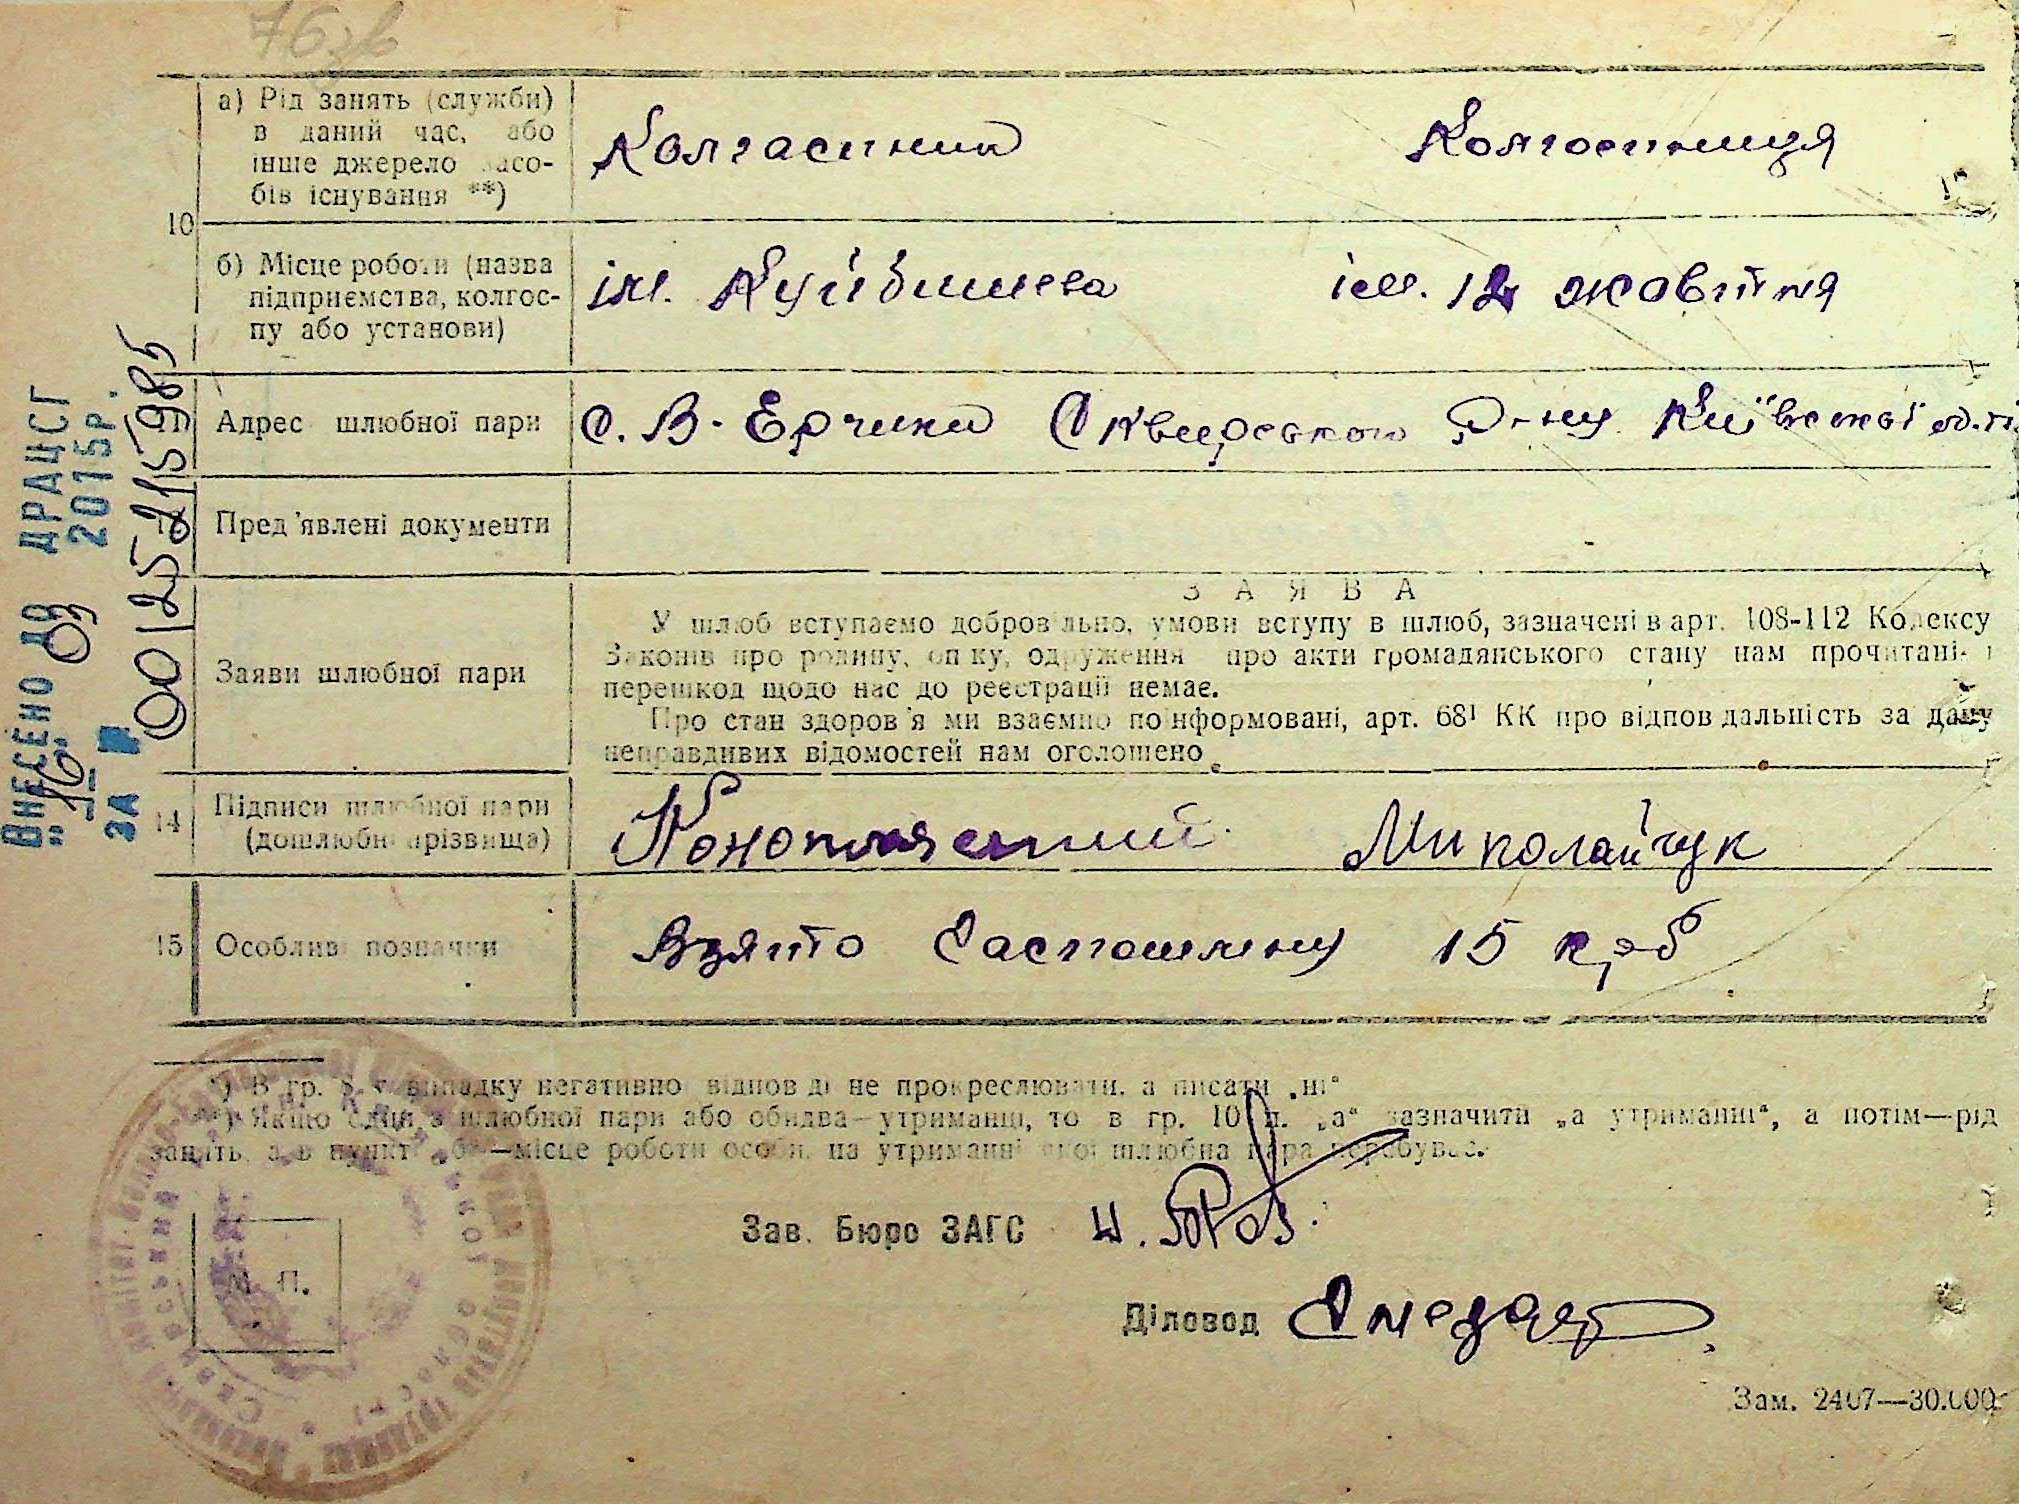 76 зв
а) Рід занять (служби)
в даний час, або
інше джерело засо-
бів існування **)
Колгаспник Колгоспниця
10
б) Місце роботи (назва
підприємства, колгос-
пу або установи)
ім. Куйбишева ім. 12 жовтня
11 Адрес шлюбної пари с. В-Ерчики Сквирського Р-ну Київської обл.
12 Пред'явлені документи
ЗАЯВА
Заяви шлюбної пари
У шлюб вступаємо добровільно, умови вступу в шлюб, зазначені в арт. 108-112 Кодексу
Законів про родину, опіку, одруження про акти громадянського стану нам прочитані і
перешкод щодо нас до реєстрації немає.
Про стан здоров'я ми взаємно поінформовані, арт. 68¹ КК про відповідальність за дачу
неправдивих відомостей нам оголошено.
14 Підписи шлюбної пари
(дошлюбні прізвища)
Конопляський Миколайчук
15 Особливі позначки Взято Госпошлину 15 крб
*) В гр. 8 у випадку негативної відповіді не прокреслювати, а писати „ні"
**) Якщо один з шлюбної пари або обидва—утриманці, то в гр. 10 п. „а" зазначити „а утриманні", а потім—рід
занять, а в пункті „б"—місце роботи особи, на утриманні якої шлюбна пара перебуває.
М. П.
Зав. Бюро ЗАГС
Діловод
Зам. 2407—30.000
ВНЕСЕНО ДО ДРАЦСГ
„16" 03 2015р.
ЗА №
00125215985